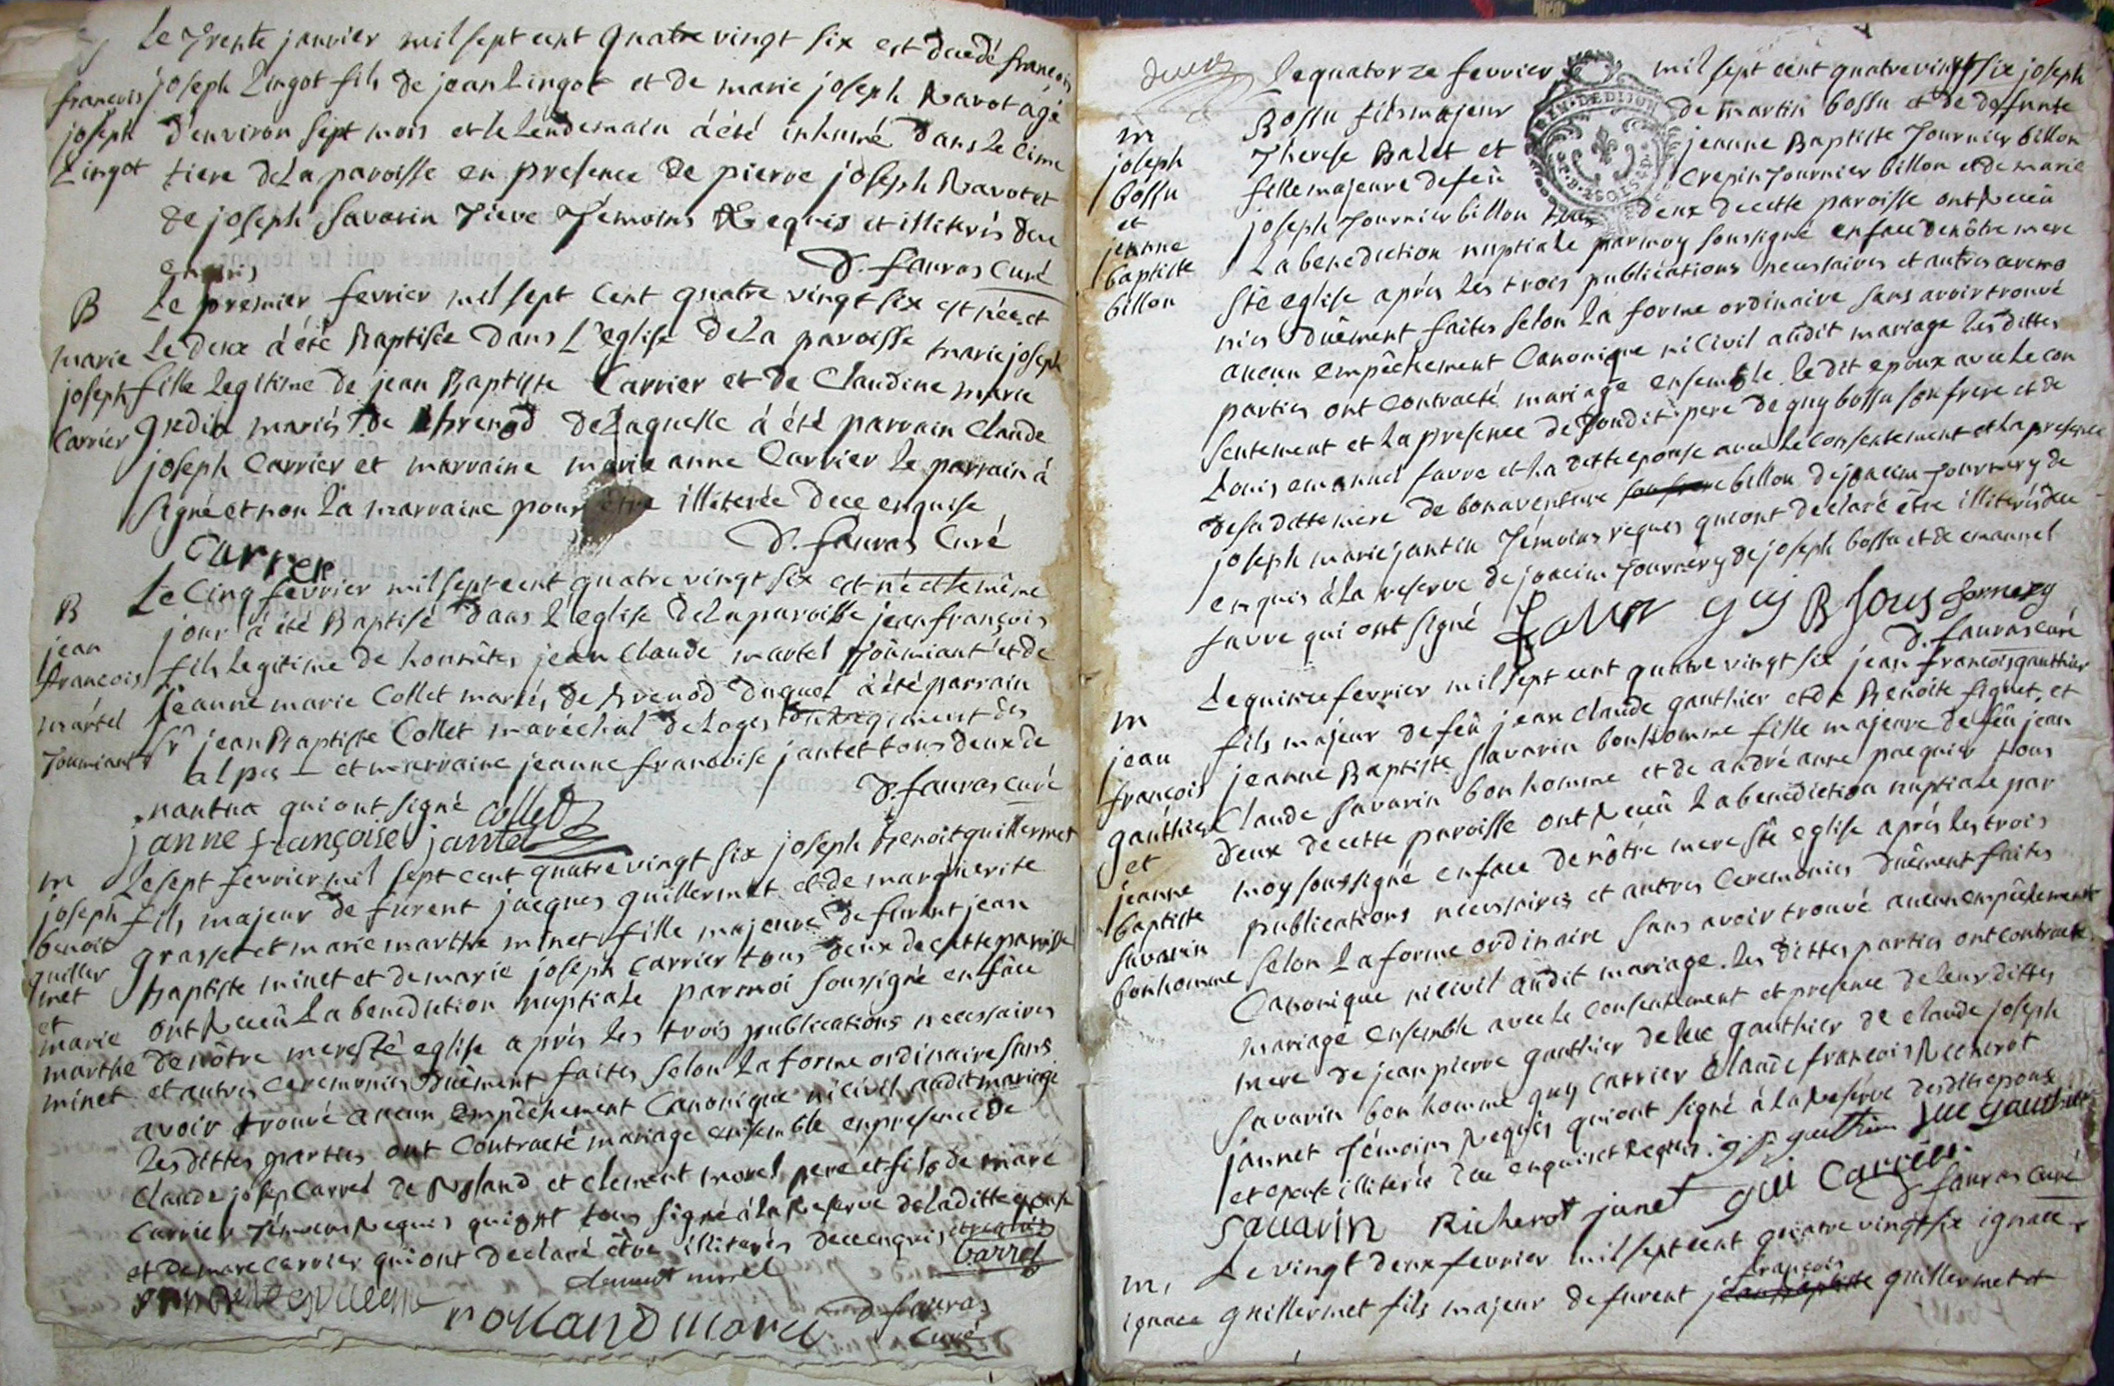 Le trente janvier mil sept cent quatre vingt six est decedé francois
francois joseph Lingot fils de jean Lingot et de marie joseph Ravot agé
joseph d'environ sept mois et le lendemain à été inhumé dans le cime
Lingot tiere de la paroisse en presence de pierre joseph Ravot et
de joseph Savarin Temoins Requis et illiterés de ce
enquis
D. fauras Curé
B Le premier fevrier mil sept cent quatre vingt six est née et
marie le deux à été Baptisée dans L'eglise de La paroisse marie joseph
joseph fille legitime de jean Baptiste Carrier et de Claudine marie
Carrier mariés de Brenod de Laquelle à été parrain Claude
joseph Carrier et marraine marie anne Carrier le parrain à
signé et non la marraine pour être illiterée de ce enquise
Carrier
D. fauras Curé
B Le cinq fevrier mil sept cent quatre vingt six est né et le même
jean jour à été Baptisé dans l'eglise de la paroisse jean françois
francois fils legitime de honnêtes jean Claude martel et de
martel jeanne marie Collet mariés de Brenod duquel à été parrain
Sr jean Baptiste Collet maréchal de Loges du Regiment des
alpes et marraine jeanne francoise jantet tous deux de
nantua qui ont signé Collet
D. fauras Curé
janne françoise jantet
m Le sept fevrier mil sept cent quatre vingt six joseph benoit guillermet
joseph fils majeur de furent jacques guillermet et de marguerite
benoit grasset et marie marthe minet fille majeure de furent jean
guiller baptiste minet et de marie joseph Carrier tous deux de cette paroisse
met ont Reccû La benediction nuptiale par moi soussigné en face
et
marie de nôtre mere ste eglise après les trois publications necessaires
marthe et autres ceremonies duêment faites selon la forme ordinaire sans
minet avoir trouvé aucun Empêchement Canonique ni civil audit mariage
Les dittes parties ont Contracté mariage ensemble en presence de
Claude josep Carrel de Roland et Clement morel pere et fils de marc
Carrier Témoins Requis qui ont tous signé à La Reserve de la ditte epouse
et de marc Carrier qui ont declaré être illiterés de ce enquis
Carrel
clement morel
rolland morel
D. fauras
Curé
Le quatorze fevrier mil sept cent quatre vingt six joseph
m Bossu fils majeur de martin bossu et de deffunte
joseph Therese Balet et jeanne Baptiste Tournier billon
bossu fille majeure de feû Crepin Tournier billon et de marie
et joseph Tournier billon tous deux de cette paroisse ont Reccû
jeanne La benediction nuptiale par moy soussigné en face de nôtre mere
baptiste Ste eglise après les trois publications necessaires et autres ceremo
billon nies duêment faites selon la forme ordinaire sans avoir trouvé
aucun Empêchement Canonique ni Civil audit mariage les dittes
parties ont Contracté mariage ensemble le dit epoux avec le con
sentement et la presence de sondit pere de guy bossu son frere et de
Louis emanuel favre et la ditte epouse avec le consentement et la presence
de sa ditte mere de bonaventure son frere billon de joacim Tournery de
joseph marie jantin Témoins requis qui ont declaré être illiterés de ce
enquis à la reserve de joacim Tournery de joseph bossu et de emanuel
favre qui ont signé
D. fauras curé
m Le quinze fevrier mil sept cent quatre vingt six jean francois gauthier
jean fils majeur de feû jean claude gauthier et de Benoite signet, et
francois jeanne Baptiste Savarin bonhomme fille majeure de feû jean
gauthier Claude Savarin bonhomme et de andré anne pacquier tous
et deux de cette paroisse ont Reccû La benediction nuptiale par
jeanne moy soussigné en face de nôtre mere Ste eglise après les trois
baptiste publications necessaires et autres Ceremonies duêment faites
Savarin selon la forme ordinaire sans avoir trouvé aucun empêchement
bonhomme Canonique ni civil audit mariage. les dittes parties ont contracté
mariage ensemble avec le consentement et presence de leurs dittes
mere de jean pierre gauthier de luc gauthier de claude joseph
Savarin bonhomme guy carrier Claude francois Richerot
jannet Témoins Requis qui ont signé à la Reserve desdits epoux
et epouse illiterés de ce enquis et Requis. luc gauthier
Savarin Richerot janet gui Carrier
D. fauras Curé
m, Le vingt deux fevrier mil sept cent quatre vingt six ignace
francois
ignace guillermet fils majeur de furent jean baptiste guillermet et